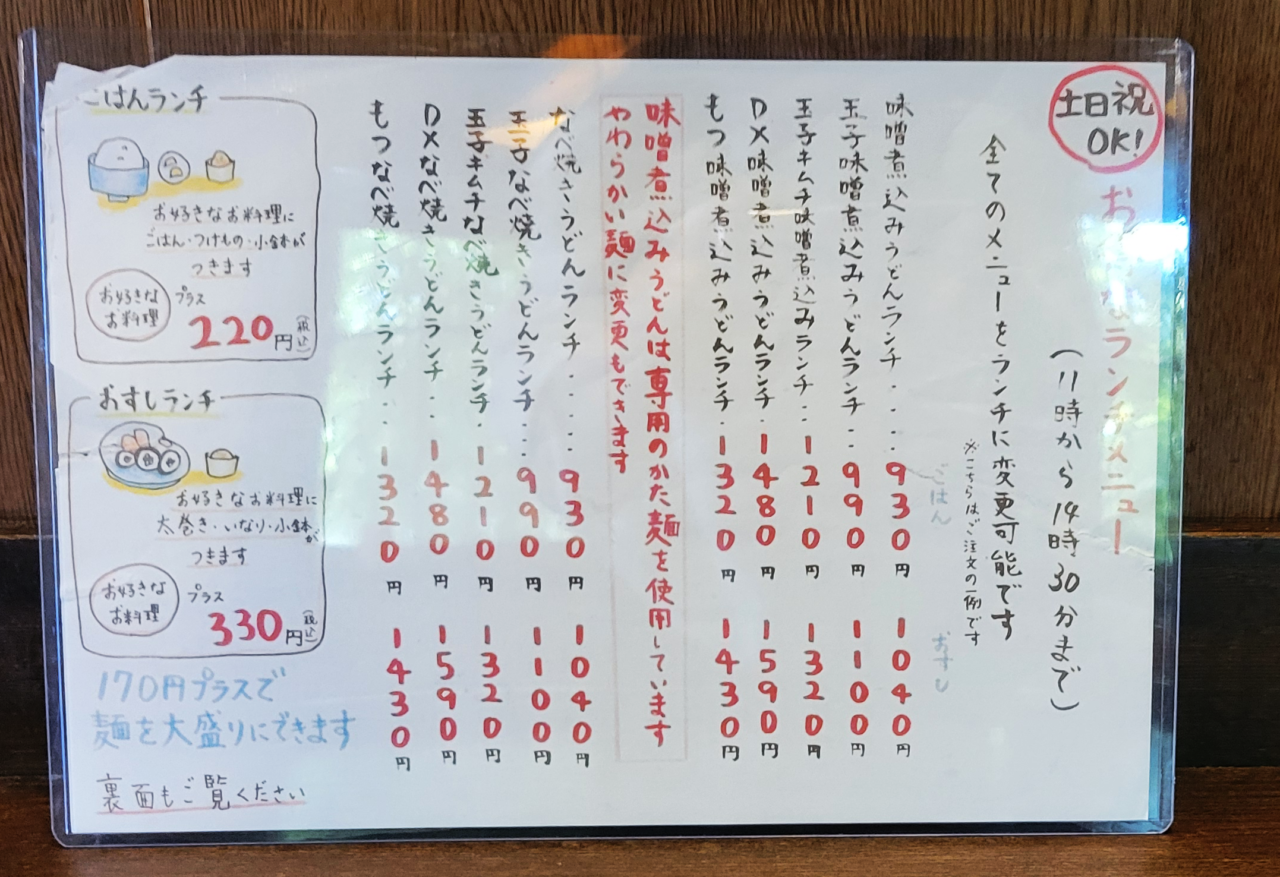 土日祝
OK!
お なランチメニュー
(11時から14時30分まで)
全てのメニューをランチに変更可能です
※こちらはご注文の一例です
ごはん
おすし
味噌煮込みうどんランチ....930円 1040円
玉子味噌煮込みうどんランチ..990円 1100円
玉子キムチ味噌煮込みランチ..1210円 1320円
DX味噌煮込みうどんランチ.1480円 1590円
もつ味噌煮込みうどんランチ.1320円 1430円
味噌煮込みうどんは専用のかた麺を使用しています
やわらかい麺に変更もできます
なべ焼きうどんランチ.....930円 1040円
玉子なべ焼きうどんランチ...990円 1100円
玉子キムチなべ焼きうどんランチ.1210円 1320円
DXなべ焼きうどんランチ...1480円 1590円
もつなべ焼きうどんランチ..1320円 1430円
ごはんランチ
お好きなお料理に
ごはん・つけもの・小鉢が
つきます
お好きな
お料理
プラス
220円(税込)
おすしランチ
お好きなお料理に
太巻き・いなり・小鉢が
つきます
お好きな
お料理
プラス
330円(税込)
170円プラスで
麺を大盛りにできます
裏面もご覧ください